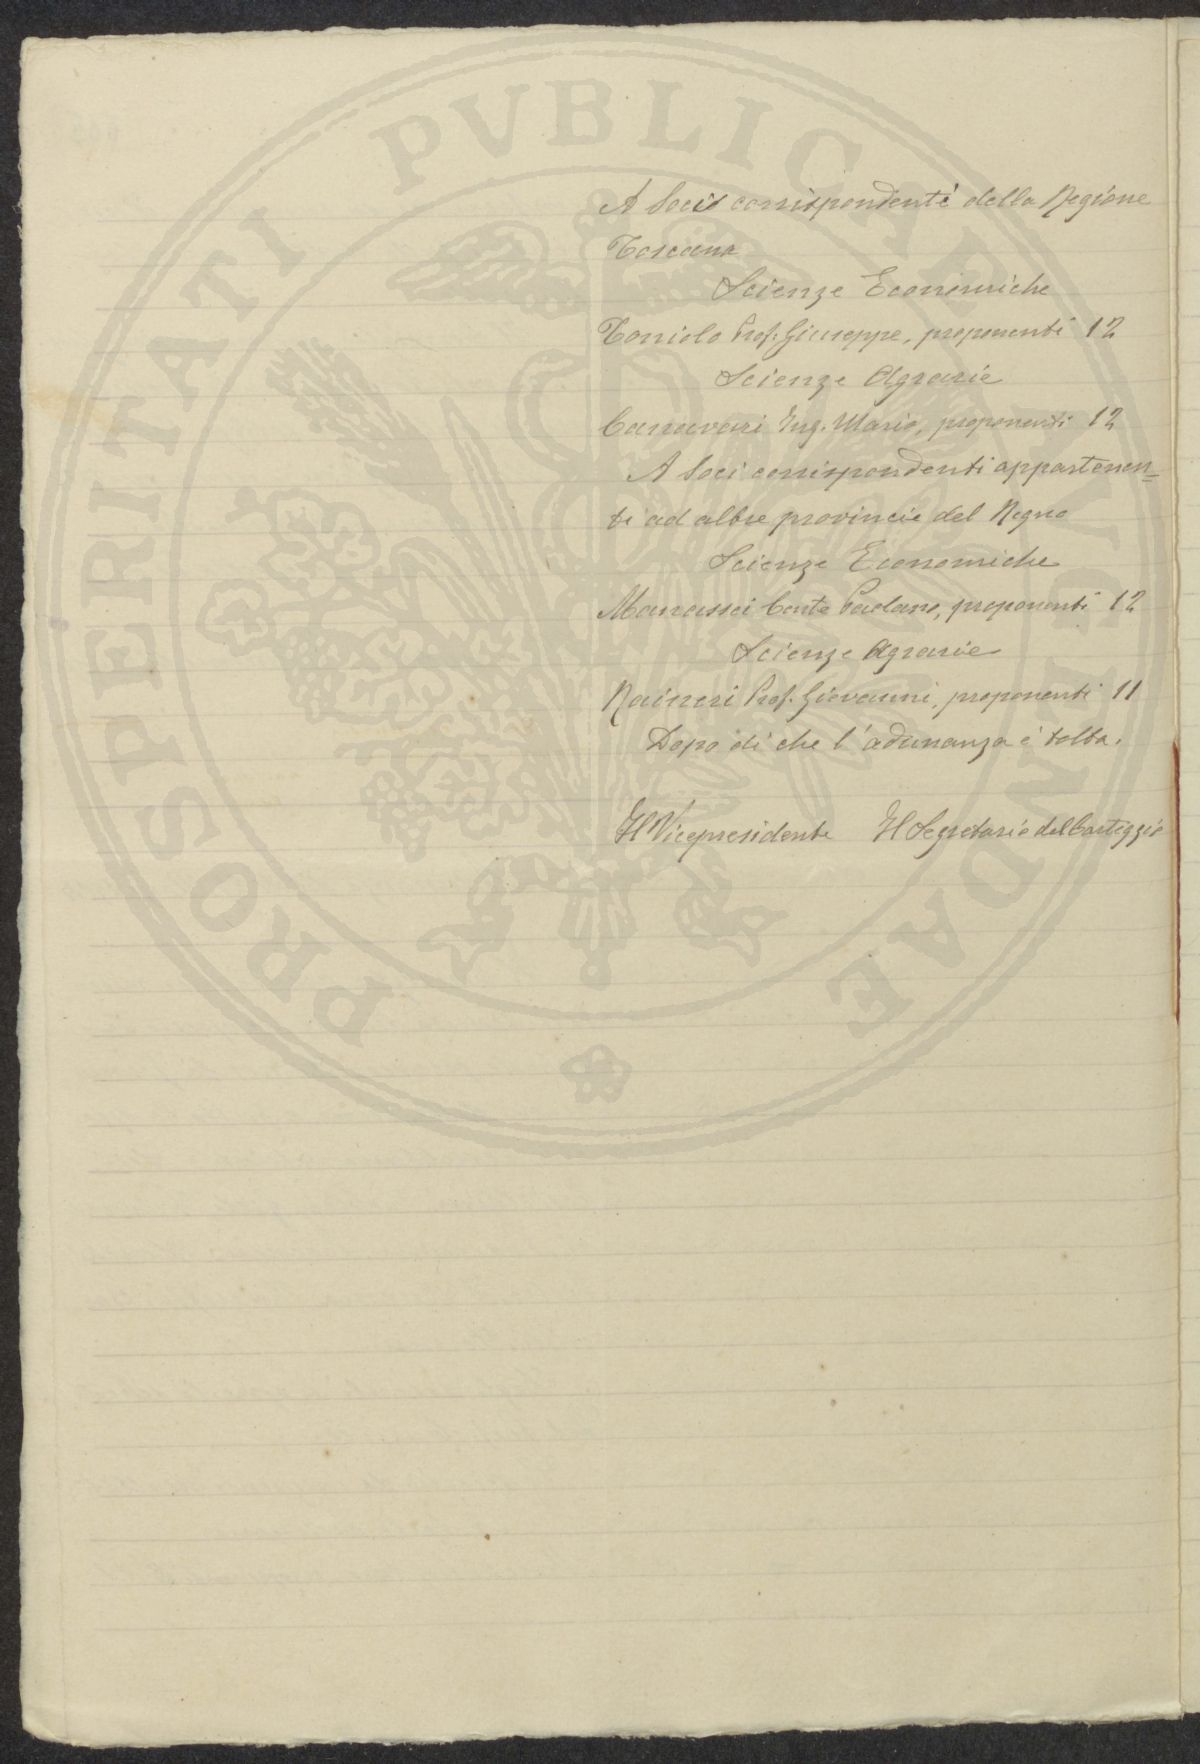 PROSPERITATI PVBLICAE AVGENDAE
A Soci corrispondenti della Regione
Toscana
Scienze Economiche
Toniolo Prof. Giuseppe, proponenti 12
Scienze Agrarie
Canavari Ing. Mario, proponenti 12
A Soci corrispondenti appartenen=
ti ad altre provincie del Regno
Scienze Economiche
Manassei Conte Paolano, proponenti 12
Scienze Agrarie
Raineri Prof. Giovanni, proponenti 11
Dopo di che l'adunanza è tolta.
Il Vicepresidente Il Segretario del Carteggio